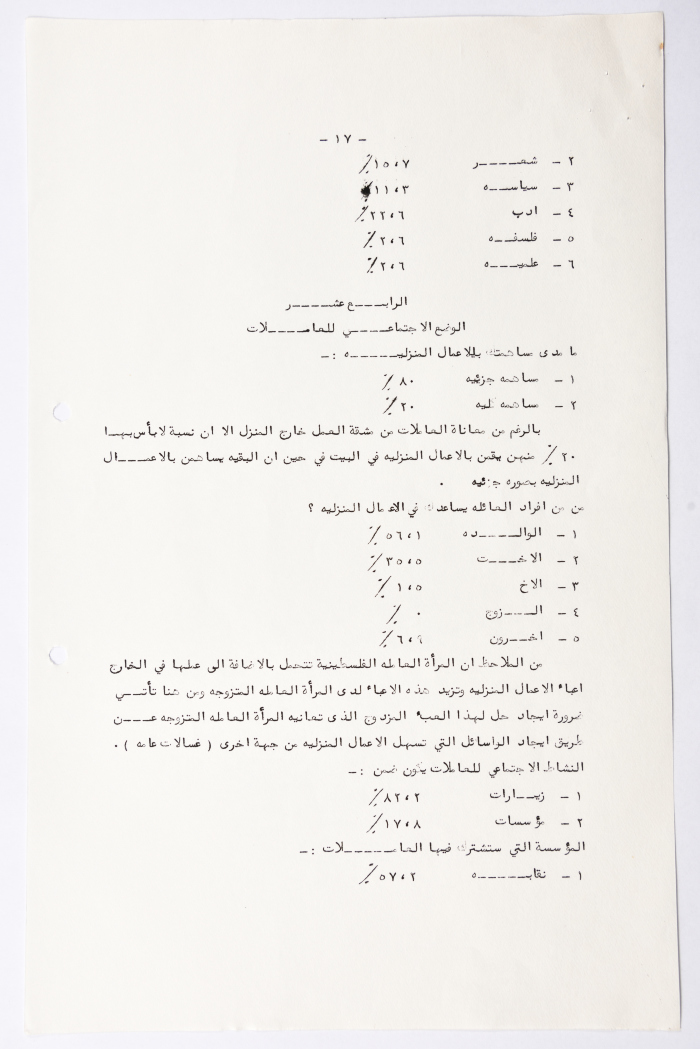 - ١٧ -
٢ - شعـــــر ١٥،٧ ٪
٣ - سياســـه ١١،٣ ٪
٤ - ادب ٢٢،٦ ٪
٥ - فلسفـــه ٢،٦ ٪
٦ - علميـــه ٢،٦ ٪
الرابـــع عشـــــر
الوضع الاجتماعـــــي للعامـــــلات
ما مدى مساهمتك بالاعمال المنزليـــــه :-
١ - مساهمه جزئيه ٨٠ ٪
٢ - مساهمه كليه ٢٠ ٪
بالرغم من معاناة العاملات من مشقة العمل خارج المنزل الا ان نسبة لابأس بهـــا
٢٠ ٪ منهن يقمن بالاعمال المنزليه في البيت في حين ان البقيه يساهمن بالاعمـــال
المنزليه بصوره جزئيه .
من من افراد العائله يساعدك في الاعمال المنزليه ؟
١ - الوالـــــده ٥٦،١ ٪
٢ - الاخـــــت ٣٥،٥ ٪
٣ - الاخ ١،٥ ٪
٤ - الـــــزوج ٠ ٪
٥ - اخـــرون ٦،٩ ٪
من الملاحظ ان المرأة العامله الفلسطينية تتحمل بالاضافة الى عملها في الخارج
اعباء الاعمال المنزليه وتزيد هذه الاعباء لدى المرأة العامله المتزوجه ومن هنا تأتـــي
ضرورة ايجاد حل لهذا العبء المزدوج الذى تعانيه المرأة العامله المتزوجه عـــن
طريق ايجاد الوسائل التي تسهل الاعمال المنزليه من جهة اخرى ( غسالات عامه ) .
النشاط الاجتماعي للعاملات يكون ضمن :-
١ - زيـــارات ٨٢،٢ ٪
٢ - مؤسسات ١٧،٨ ٪
المؤسسة التي ستشترك فيها العامـــــلات :-
١ - نقابـــــه ٥٧،٢ ٪